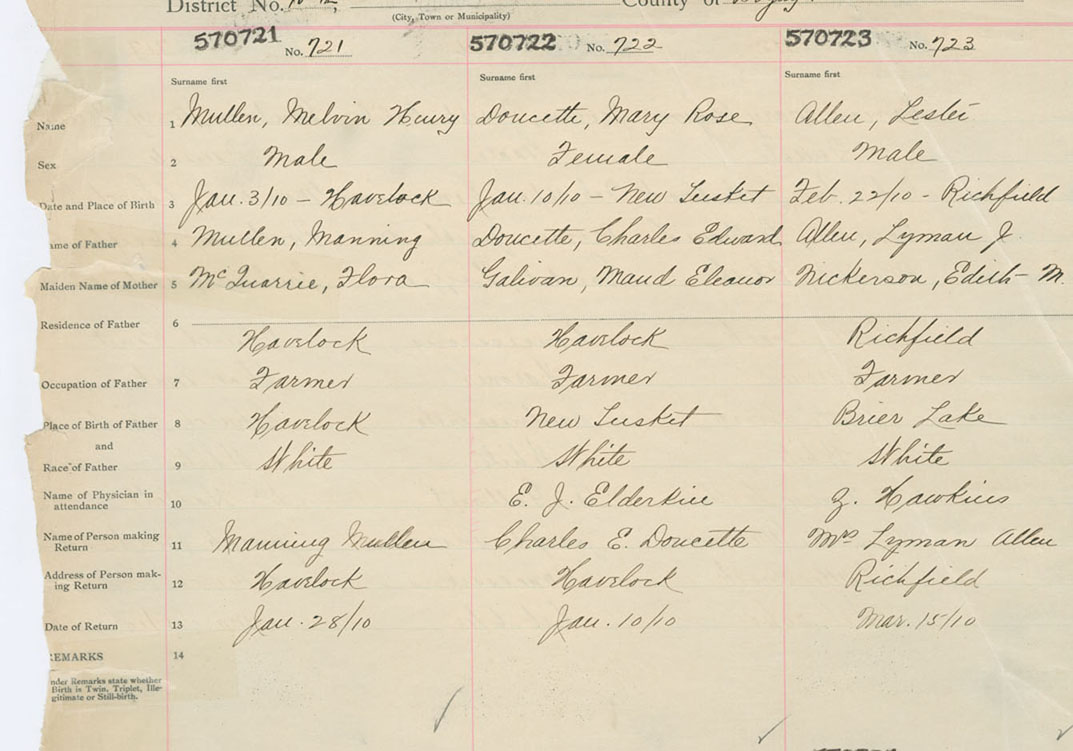 District No. County of
(City, Town or Municipality)
570721 No. 721 570722 No. 722 570723 No. 723
Surname first Surname first Surname first
Name 1 Mullen, Melvin Henry Doucette, Mary Rose Allen, Lester
Sex 2 Male Female Male
Date and Place of Birth 3 Jan. 3/10 - Havelock Jan. 10/10 - New Tusket Feb. 22/10 - Richfield
ame of Father 4 Mullen, Manning Doucette, Charles Edward Allen, Lyman J.
Maiden Name of Mother 5 McQuarrie, Flora Galivan, Maud Eleanor Nickerson, Edith M.
Residence of Father 6 Havelock Havelock Richfield
Occupation of Father 7 Farmer Farmer Farmer
Place of Birth of Father 8 Havelock New Tusket Brier Lake
and
Race of Father 9 White White White
Name of Physician in
attendance 10 E. J. Elderkin Z. Hawkins
Name of Person making
Return 11 Manning Mullen Charles E. Doucette Mrs Lyman Allen
Address of Person mak-
ing Return 12 Havelock Havelock Richfield
Date of Return 13 Jan. 28/10 Jan. 10/10 Mar. 15/10
REMARKS 14
nder Remarks state whether
Birth is Twin, Triplet, Ille-
gitimate or Still-birth.